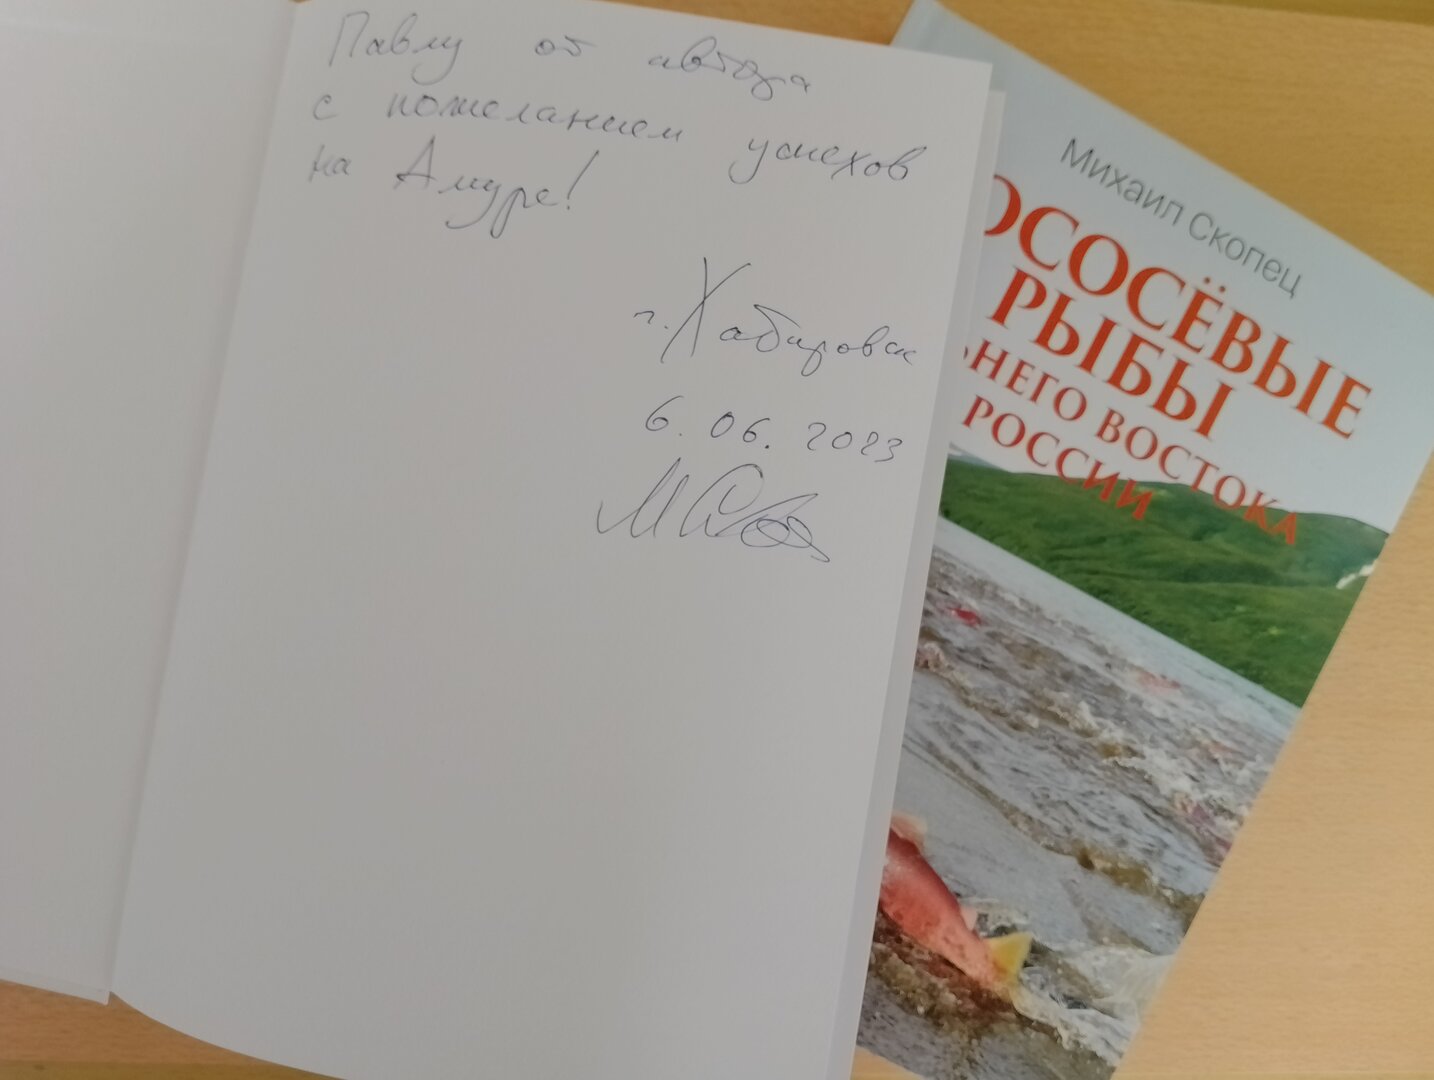 Павлу от автора
с пожеланием успехов
на Амуре!
г. Хабаровск
6. 06. 2023
Михаил Скопец
ОСОСЁВЫЕ
РЫБЫ
ЬНЕГО ВОСТОКА
РОССИИ